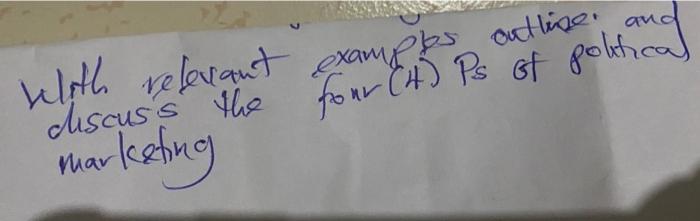 With relevant examples outline and
discuss the four (4) Ps of political
marketing